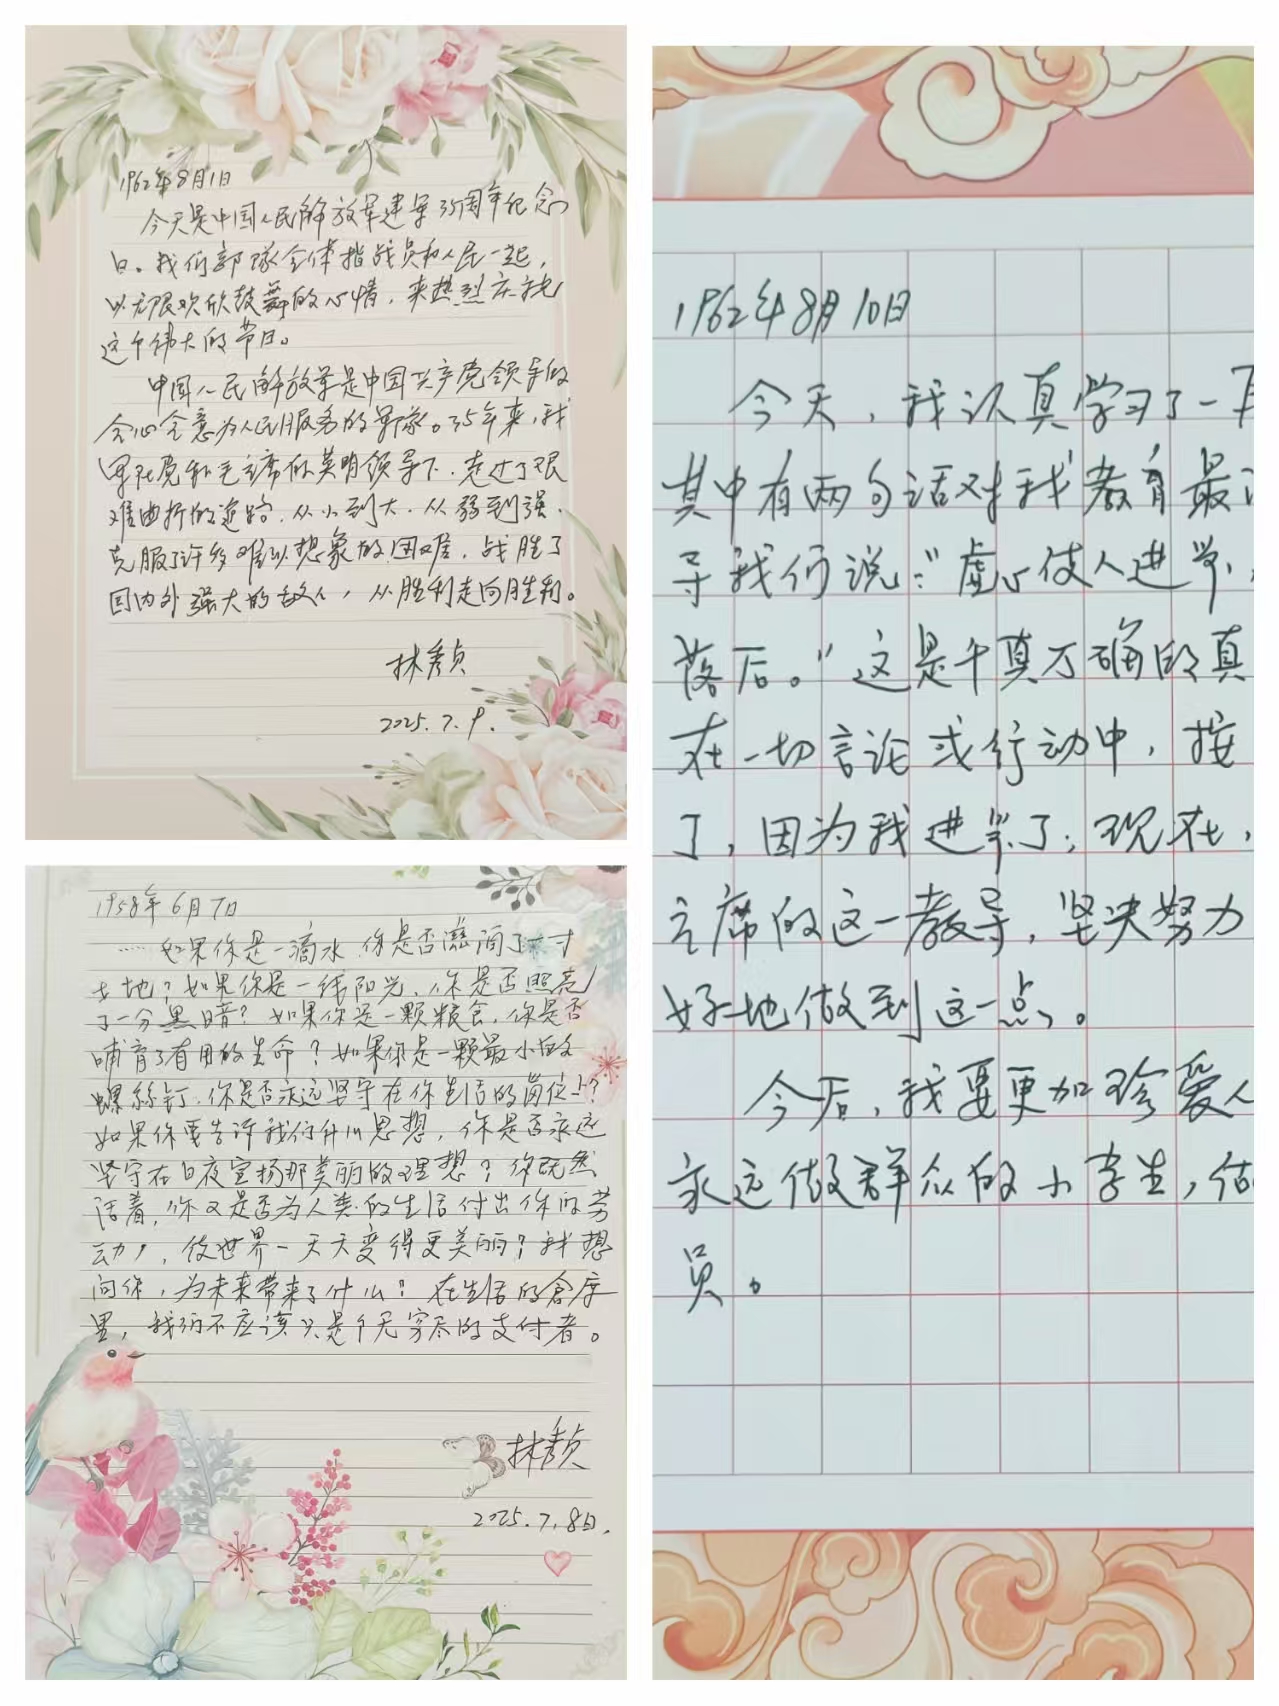 1962年8月1日
今天是中国人民解放军建军35周年纪念
日。我们部队全体指战员和人民一起，
以无限欢欣鼓舞的心情，来热烈庆祝
这个伟大的节日。
中国人民解放军是中国共产党领导的
全心全意为人民服务的军队。35年来，我
军在党和毛主席的英明领导下，走过了艰
难曲折的道路，从小到大，从弱到强，
克服了许多难以想象的困难，战胜了
国内外强大的敌人，从胜利走向胜利。
林秀贞
2025.7.9.
1958年6月7日
……如果你是一滴水，你是否滋润了一寸
土地？如果你是一线阳光，你是否照亮
了一分黑暗？如果你是一颗粮食，你是否
哺育了有用的生命？如果你是一颗最小的
螺丝钉，你是否永远坚守在你生活的岗位上？
如果你要告诉我们什么思想，你是否永远
坚守在日夜宣扬那美丽的理想？你既然
活着，你又是否为人类的生活付出你的劳
动，使世界一天天变得更美丽？我想
问你，为未来带来了什么？在生活的仓库
里，我们不应该只是个无穷尽的支付者。
林秀贞
2025.7.8日.
1962年8月10日
今天，我认真学习了一
其中有两句话对我教育最
导我们说：“虚心使人进步，
落后。”这是千真万确的真
在一切言论或行动中，按
了，因为我进步了；现在，
主席的这一教导，坚决努力
好地做到这一点。
今后，我要更加珍爱人
永远做群众的小学生，做
员。